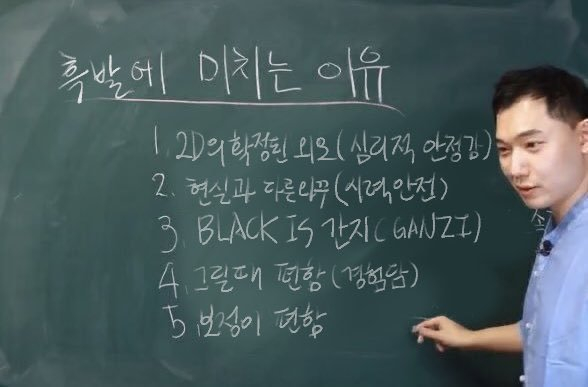 흑발에 미치는 이유
1. 2D의 학정된 외모 (심리적 안정감)
2. 현실과 다른외꾸 (시력안전)
3. BLACK IS 간지 (GANZI)
4. 그릴때 편함 (경험담)
5. 보정이 편함